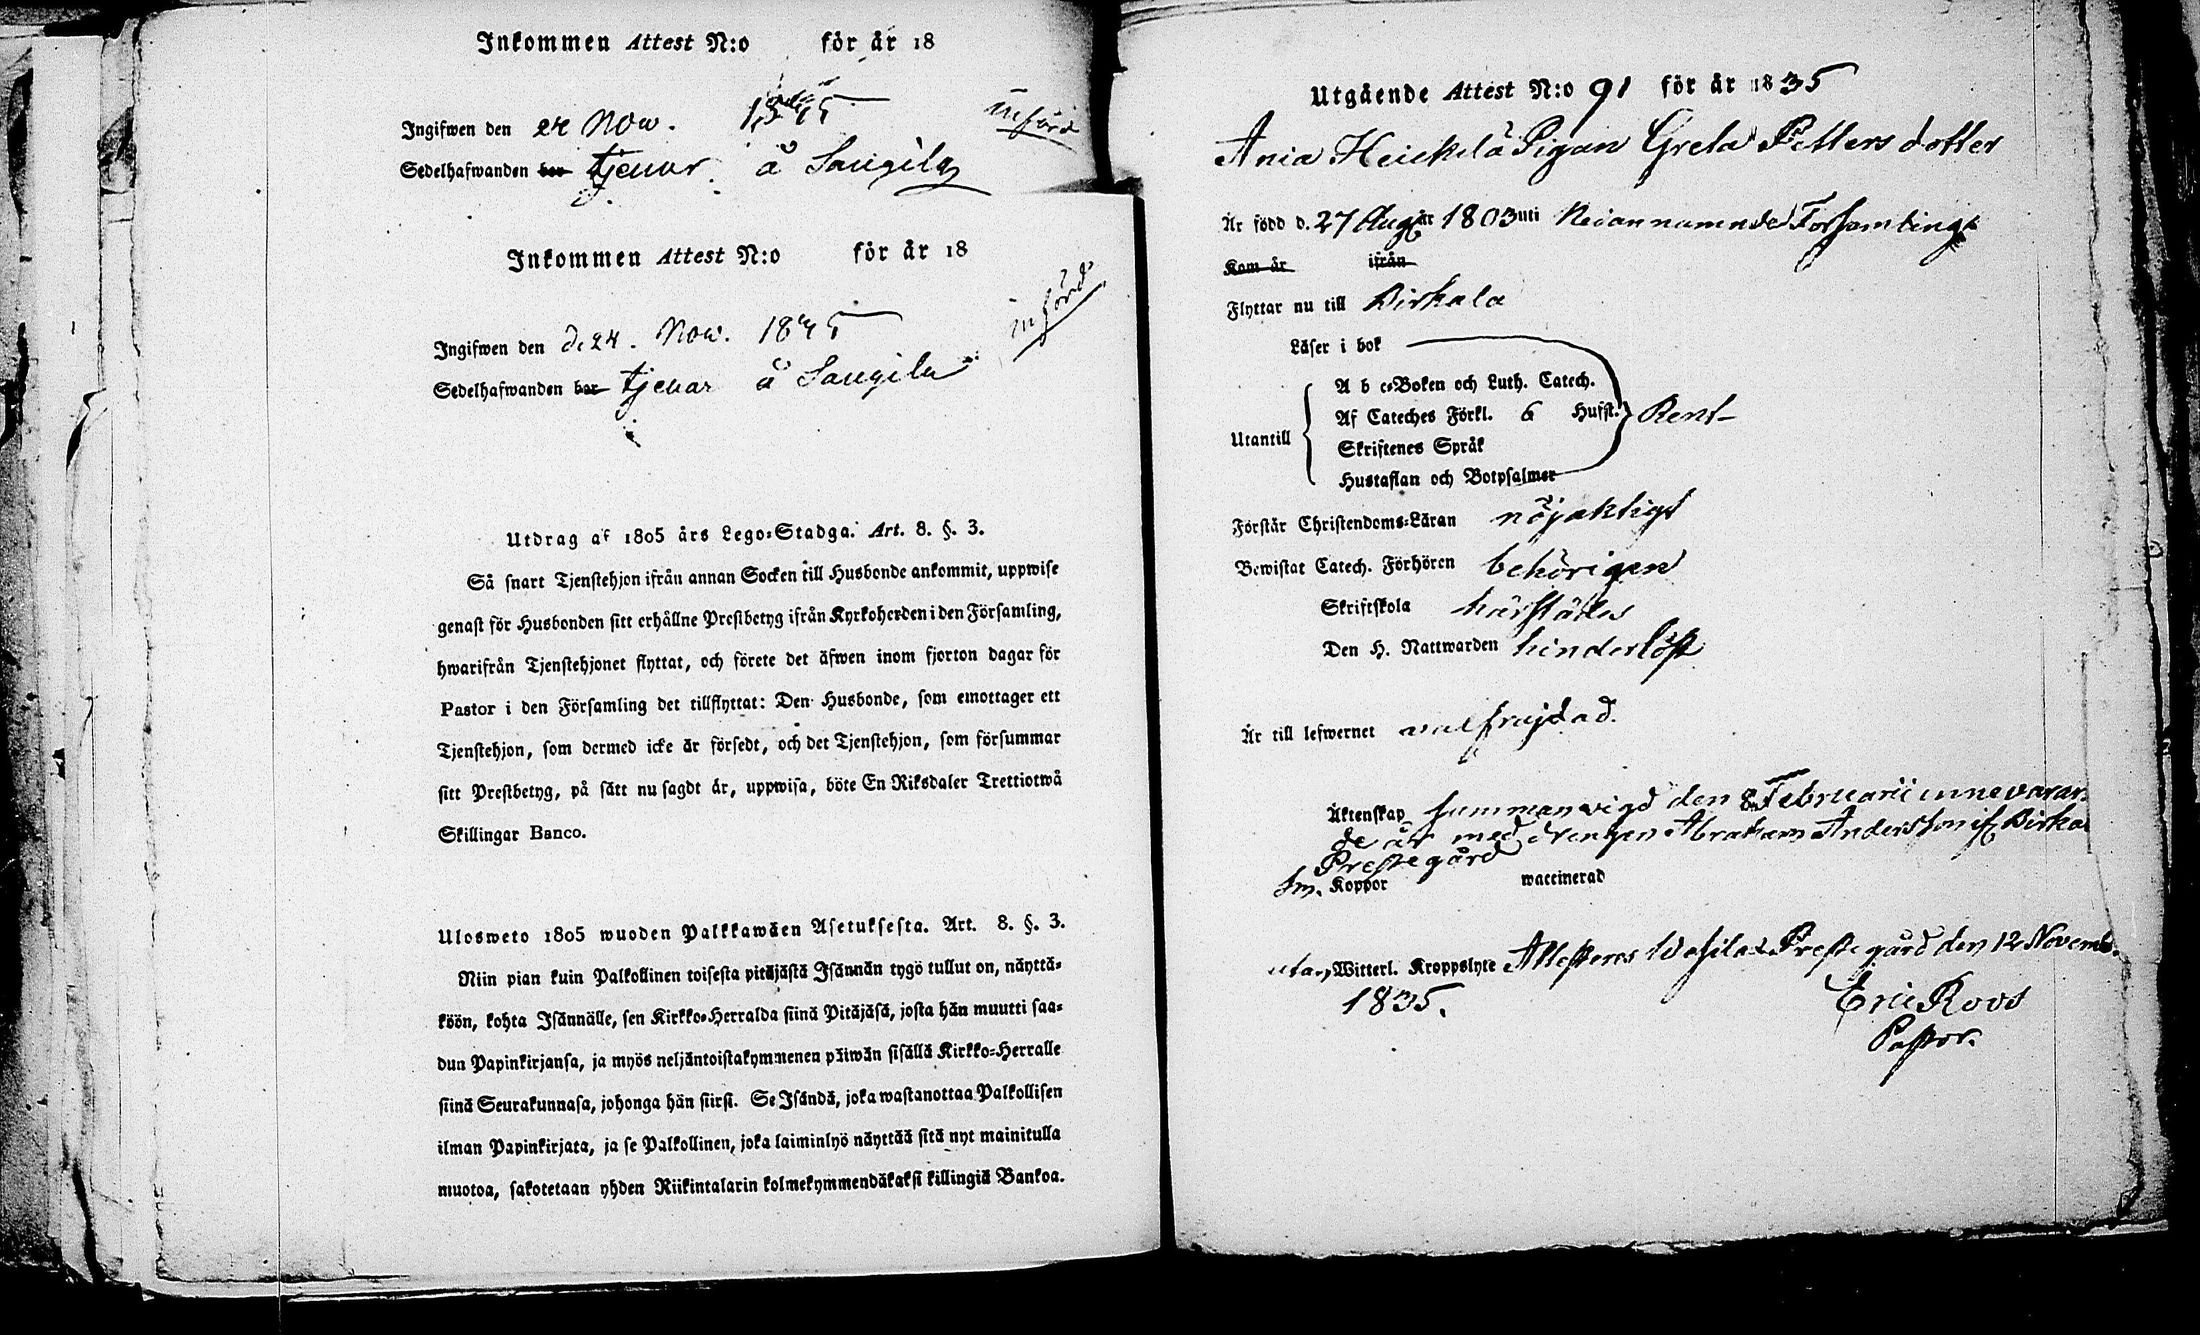 Inkommen Attest N:o för år 18
Ingifwen den 24 Now. 1835
införd
Sedelhafwanden bor tjenar å Saugila
Inkommen Attest N:o för år 18
införd
Ingifwen den d. 24. Now. 1835
Sedelhafwanden bor tjenar å Saugila
Utdrag af 1805 års Lego-Stadga. Art. 8. §. 3.
Så snart Tjenstehjon ifrån annan Socken till Husbonde ankommit, uppwise
genast för Husbonden sitt erhållne Prestbetyg ifrån Kyrkoherden i den Församling,
hwarifrån Tjenstehjonet flyttat, och förete det äfwen inom fjorton dagar för
Pastor i den Församling det tillflyttat: Den Husbonde, som emottager ett
Tjenstehjon, som dermed icke är försedt, och det Tjenstehjon, som försummar
sitt Prestbetyg, på sätt nu sagdt är, uppwisa, böte En Riksdaler Trettiotwå
Skillingar Banco.
Ulosweto 1805 wuoden Palkkawäen Asetuksesta. Art. 8. §. 3.
Niin pian kuin Palkollinen toisesta pitäjästä Isännän tygö tullut on, näyttä-
köön, kohta Isännälle, sen Kirkko-Herralda siinä Pitäjäsä, josta hän muutti saa-
dun Papinkirjansa, ja myös neljäntoistakymmenen päiwän sisällä Kirkko-Herralle
siinä Seurakunnasa, johonga hän siirsi. Se Isändä, joka wastanottaa Palkollisen
ilman Papinkirjata, ja se Palkollinen, joka laiminlyö näyttää sitä nyt mainitulla
muotoa, sakotetaan yhden Riikintalarin kolmekymmendäkaksi killingiä Bankoa.
Utgående Attest N:o 91 för år 1835
Ania Heickilä Pigan Greta Pettersdotter
Är född d. 27 Aug. år 1803 uti Församling
Kom år ifrån
Flyttar nu till Birkala
Läser i bok
A b c-Boken och Luth. Catech.
Af Cateches Förkl. 6 Hufst. Rent
Utantill
Skriftenes Språk
Hustaflan och Botpsalmer
Förstår Christendoms-Läran nöjaktigt
Bewistat Catech. Förhören behörigen
Skriftskola härstädes
Den H. Nattwarden hinderlöst
Är till lefwernet välfrejdad.
Äktenskap sammanvigd den 8 Februarii innevaran-
de år med drengen Abraham Andersson if. Birkala
Prestegård
Sm. Koppor waccinerad
utan Witterl. Kroppslyte Attesteras Wesilax Prestegård den 12 Novemb.
1835.
Eric Roos
Pastor.